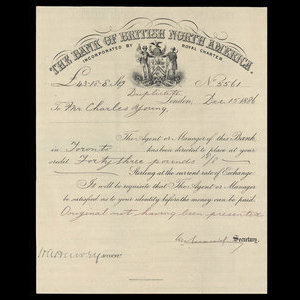 THE BANK OF BRITISH NORTH AMERICA.
INCORPORATED BY ROYAL CHARTER
£43-18-8 Stg No 3561
Duplicate London, Dec 15 1886
To Mr Charles Young
The Agent or Manager of this Bank
in Toronto has been directed to place at your
credit Forty three pounds
Sterling at the current rate of Exchange.
It will be requisite that The Agent or Manager
be satisfied as to your identity before the money can be paid.
Original not having been presented
Secretary.